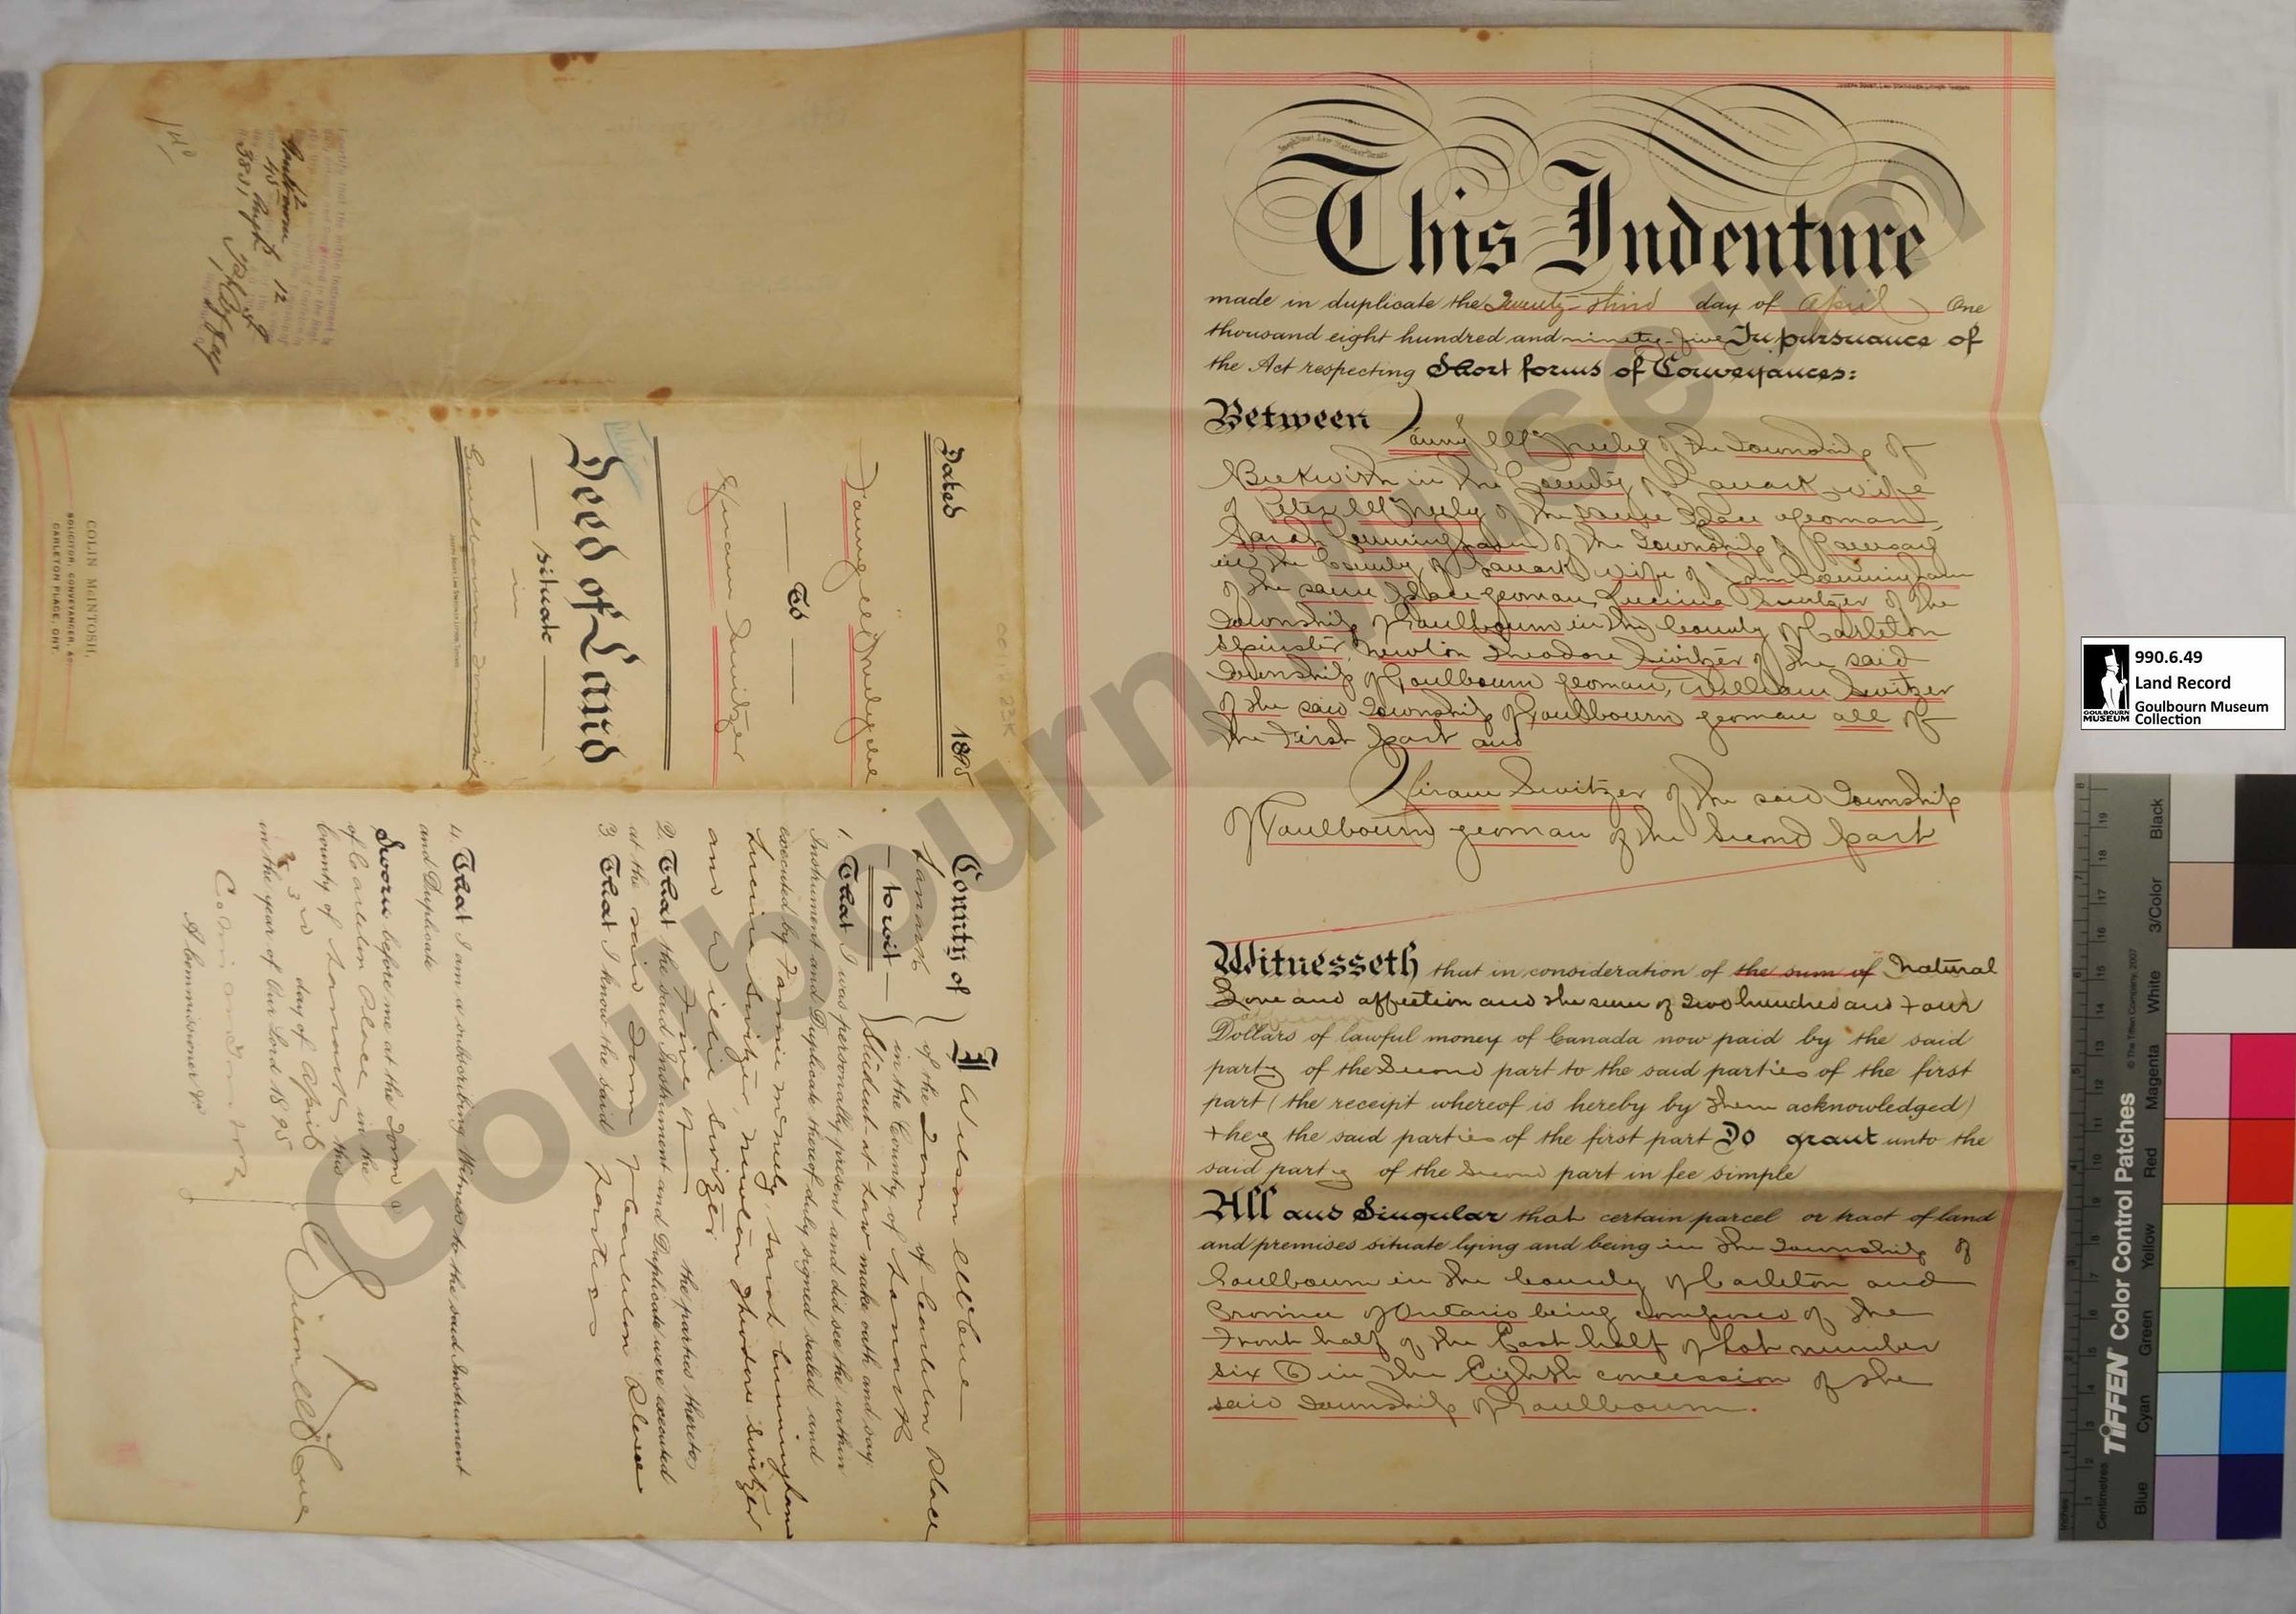 This Indenture
made in duplicate the Twenty-third day of April One
thousand eight hundred and ninety-five In pursuance of
the Act respecting Short forms of Conveyances:
Between Fanny McNeely of the Township of
Beckwith in the County of Lanark wife
of Peter McNeely of the same place yeoman,
Sarah Cunningham of the Township of Ramsay
in the County of Lanark wife of John Cunningham
of the same place yeoman, Lucina Switzer of the
Township of Goulbourn in the County of Carleton
Spinster, Newton Theodore Switzer of the said
Township of Goulbourn yeoman, William Switzer
of the said Township of Goulbourn yeoman all of
the First part and
Hiram Switzer of the said Township
of Goulbourn yeoman of the Second part
Witnesseth that in consideration of the sum of Natural
Love and affection and the sum of Two hundred and Four
Dollars of lawful money of Canada now paid by the said
party of the Second part to the said parties of the first
part (the receipt whereof is hereby by them acknowledged)
they the said parties of the first part Do grant unto the
said party of the Second part in fee simple
All and Singular that certain parcel or tract of land
and premises situate lying and being in the Township of
Goulbourn in the County of Carleton and
Province of Ontario being composed of the
Front half of the East half of Lot number
six in the Eighth concession of the
said Township of Goulbourn.
Dated 1895
Fanny McNeely et al
To
Hiram Switzer
Deed of Land
situate
in
Goulbourn Township
COLIN McINTOSH,
SOLICITOR, CONVEYANCER, &c
CARLETON PLACE, ONT.
County of
Lanark
to wit
I Wilson McCue
of the Town of Carleton Place
in the County of Lanark
Student-at-Law make oath and say
1. That I was personally present and did see the within
Instrument and Duplicate thereof duly signed sealed and
executed by Fannie McNeely, Sarah Cunningham
Lucina Switzer, Newton Theodore Switzer
and Willie Switzer
Five of the parties thereto
2. That the said Instrument and Duplicate were executed
at the said Town of Carleton Place
3. That I know the said parties
4. That I am a subscribing Witness to the said Instrument
and Duplicate
Sworn before me at the Town
of Carleton Place in the
County of Lanark this
23rd day of April
in the year of Our Lord 1895
A Commissioner &c
Wilson McCue
Goulbourn Museum
990.6.49
Land Record
Goulbourn Museum
Collection
GOULBOURN
MUSEUM
TIFFEN Color Control Patches
© The Tiffen Company, 2007
Inches
Centimetres
Blue
Cyan
Green
Yellow
Red
Magenta
White
3/Color
Black